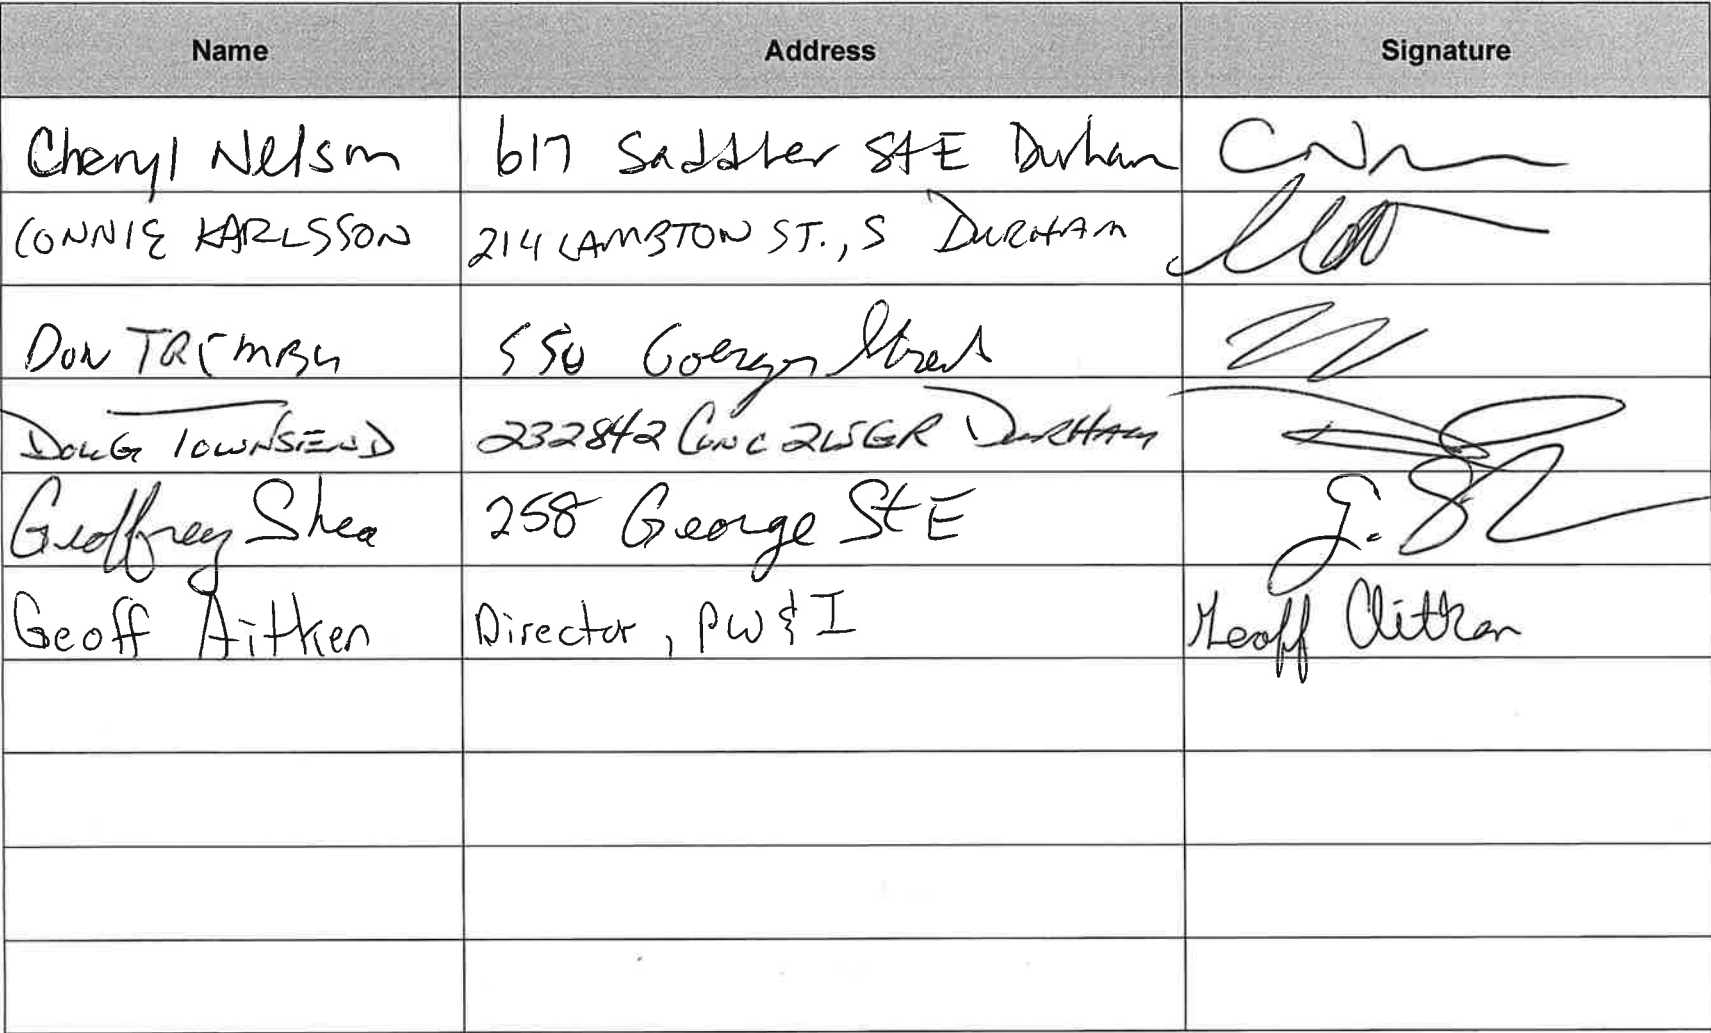 Name Address Signature
Cheryl Nelson 617 Saddler St E Durham
CONNIE KARLSSON 214 LAMBTON ST., S DURHAM
DON 550 George Street
DOUG TOWNSEND 232842 CONC 2 WGR DURHAM
Geoffrey Shea 258 George St E G. S
Geoff Aitken Director, PW & I Geoff Aitken